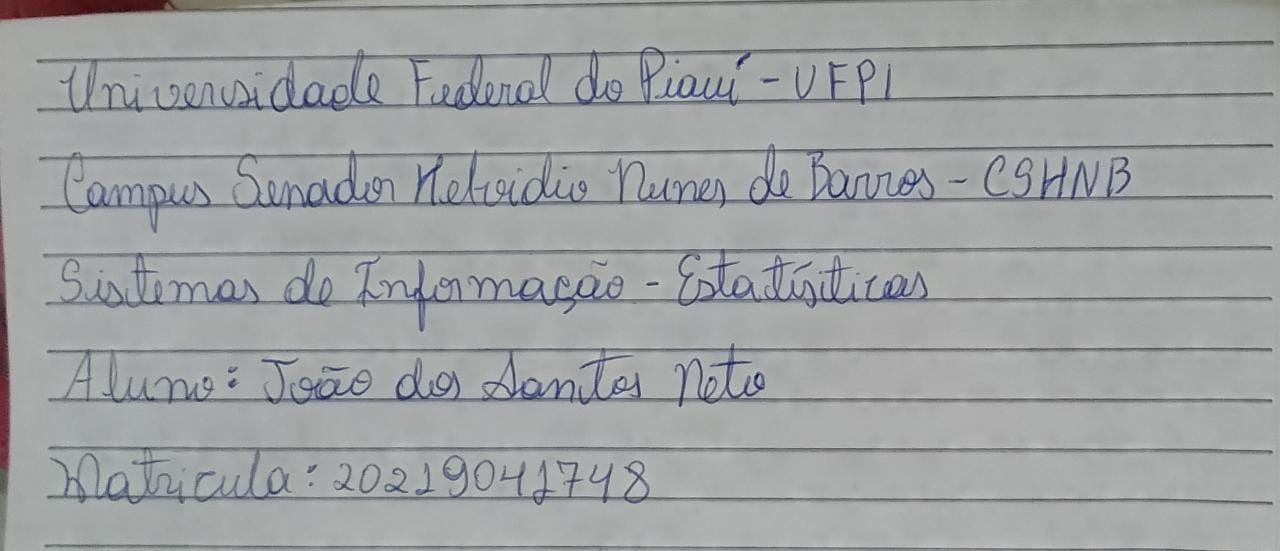 Universidade Federal do Piauí - UFPI
Campus Senador Helvidio Nunes de Barros - CSHNB
Sistemas de Informação - Estatísticas
Aluno: João dos Santos Neto
Matricula: 20219041748